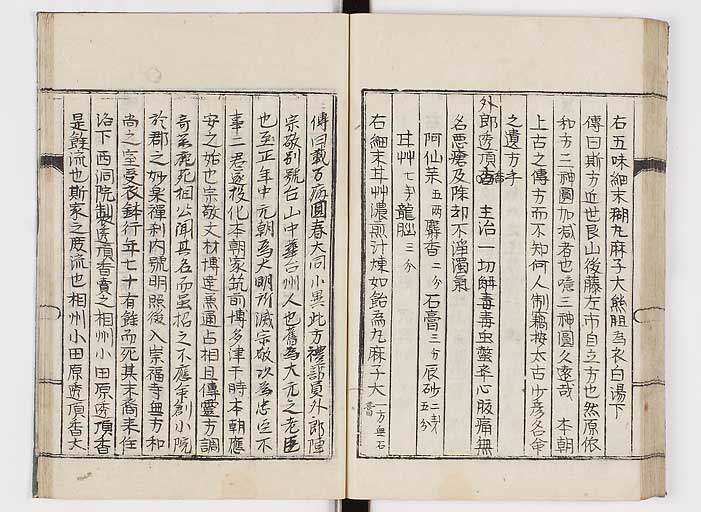 右五味細末糊丸麻子大熊胆為衣白湯下
傳曰斯方近世艮山後藤左市自立方也然原依
和方三神圓加減者也噫三神圓久遠哉 本朝
上古之傳方而不知何人制藕按太古少彦名命
之遺方乎
外郎透頂香 主治一切解毒毒虫螫卒心腹痛無
名悪瘡及除却不浄濁氣
阿仙茶 五両 麝香 二分 石膏 三分 辰砂 二戔五分
甘艸 七戔 龍脳 三分
右細末甘艸濃煎汁煉如飴為丸麻子大 一方無石膏
傳曰載万病圓春大同小異此方禮部員外郎陳
宗敬別號台山中華台州人也舊為大元之老臣
也至正年中元朝為大明所滅宗敬以為忠臣不
事二君遂投化本朝家筑前博多津于時本朝應
安之始也宗敬文材博達兼通占相且傳靈方調
奇薬 丞相公聞其名而雖招之不應命創小院
於郡之妙楽禅刹内號明照後入崇福寺無方和
尚之室受衣鉢行年七十有餘而死其末裔来住
洛下西洞院製透頂香賣之相州小田原透頂香
是餘流也斯家之庶流也相州小田原透頂香大